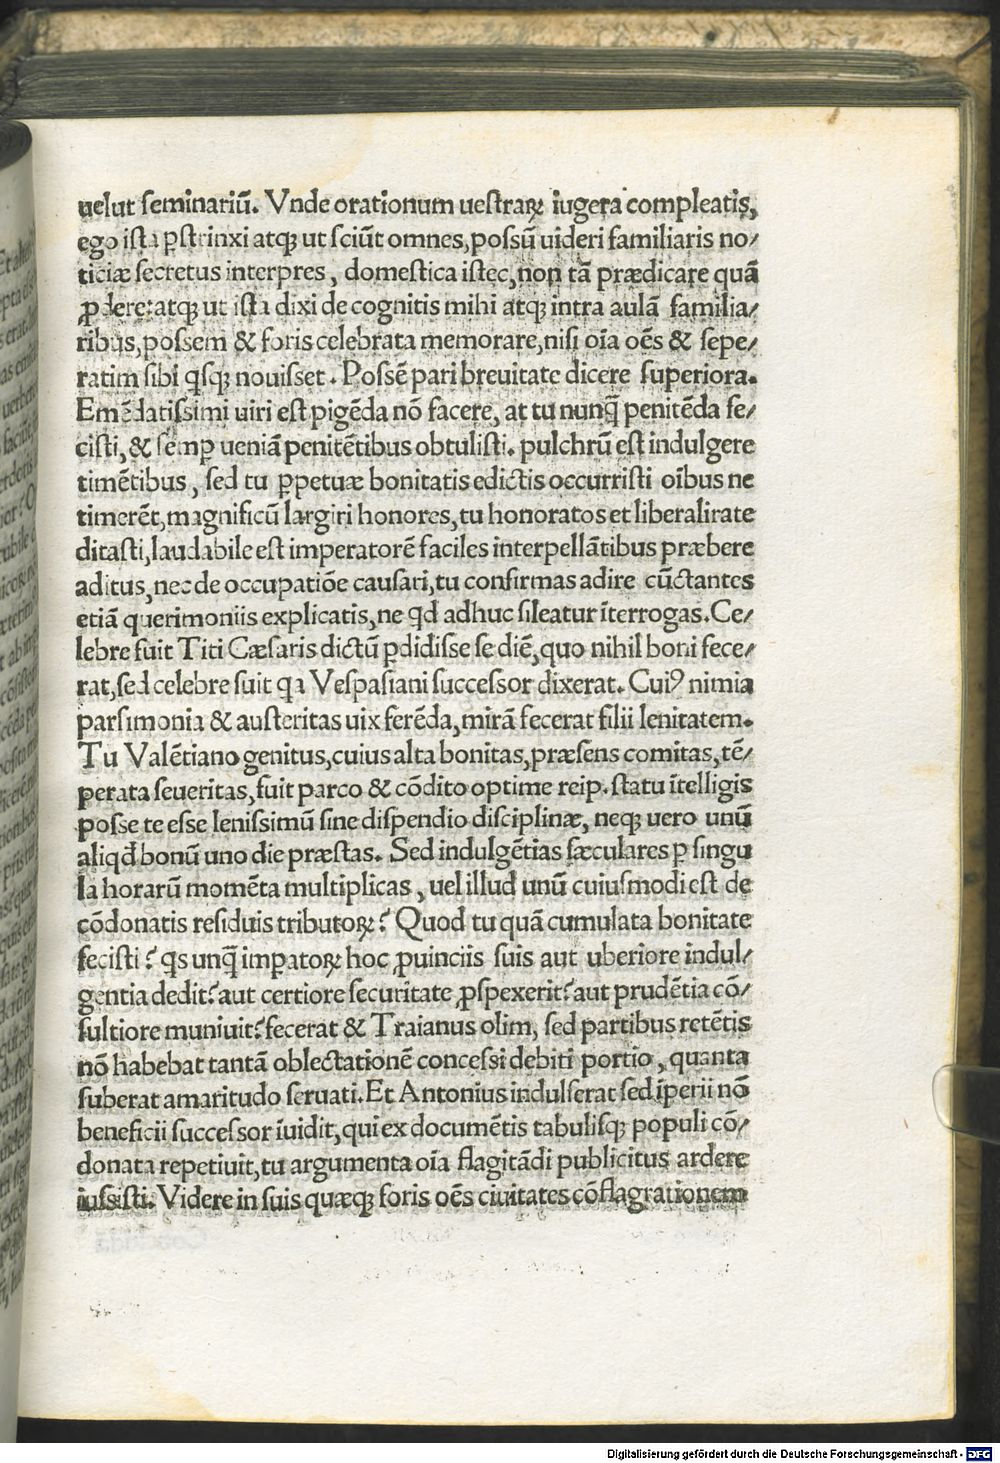 uelut seminariũ. Vnde orationum uestraꝝ iugera compleatis,
ego ista ꝑstrinxi atqꝫ ut sciũt omnes, possũ uideri familiaris no/
ticiæ secretus interpres, domestica istec, non tã prædicare quã
ꝓdere: atqꝫ ut ista dixi de cognitis mihi atqꝫ intra aulã familia/
ribus, possem & foris celebrata memorare, nisi oĩa oẽs & sepe/
ratim sibi qsqꝫ nouisset. Possẽ pari breuitate dicere superiora.
Emẽdatissimi uiri est pigẽda nõ facere, at tu nunq̃ penitẽda fe/
cisti, & semꝑ ueniã penitẽtibus obtulisti. pulchrũ est indulgere
timẽtibus, sed tu ꝑpetuæ bonitatis edictis occurristi oĩbus ne
timerẽt, magnificũ largiri honores, tu honoratos et liberalirate
ditasti, laudabile est imperatorẽ faciles interpellãtibus præbere
aditus, nec de occupatiõe causari, tu confirmas adire cũctantes
etiã querimoniis explicatis, ne qd adhuc sileatur ĩterrogas. Ce/
lebre fuit Titi Cæsaris dictũ ꝑdidisse se diẽ, quo nihil boni fece/
rat, sed celebre fuit qa Vespasiani successor dixerat. Cuiꝰ nimia
parsimonia & austeritas uix ferẽda, mirã fecerat filii lenitatem.
Tu Valẽtiano genitus, cuius alta bonitas, præsens comitas, tẽ/
perata seueritas, fuit parco & cõdito optime reip. statu ĩtelligis
posse te esse lenissimũ sine dispendio disciplinæ, neqꝫ uero unũ
aliqd bonũ uno die præstas. Sed indulgẽtias sæculares ꝑ singu
la horarũ momẽta multiplicas, uel illud unũ cuiusmodi est de
cõdonatis residuis tributoꝝ? Quod tu quã cumulata bonitate
fecisti? qs unq̃ imꝑatoꝝ hoc ꝓuinciis suis aut uberiore indul/
gentia dedit? aut certiore securitate ꝓspexerit? aut prudẽtia cõ/
sultiore muniuit? fecerat & Traianus olim, sed partibus retẽtis
nõ habebat tantã oblectationẽ concessi debiti portio, quanta
suberat amaritudo seruati. Et Antonius indulserat sed ĩperii nõ
beneficii successor ĩuidit, qui ex documẽtis tabulisqꝫ populi cõ/
donata repetiuit, tu argumenta oĩa flagitãdi publicitus ardere
iussisti. Videre in suis quæqꝫ foris oẽs ciuitates cõflagrationem
Digitalisierung gefördert durch die Deutsche Forschungsgemeinschaft - DFG